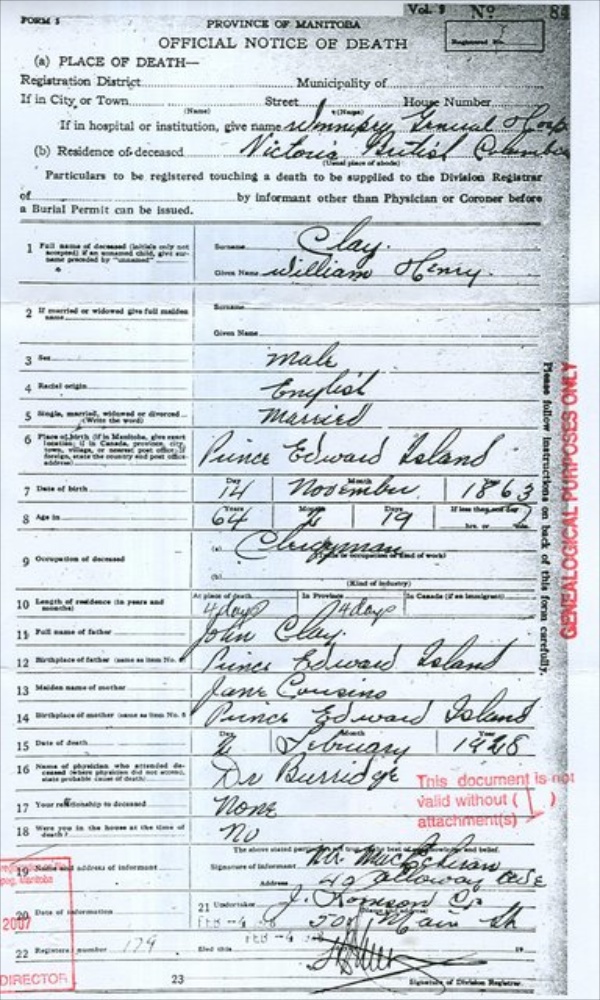 Vol. 9 No 84
FORM 5
PROVINCE OF MANITOBA
OFFICIAL NOTICE OF DEATH
Registered No.
(a) PLACE OF DEATH—
Registration District Municipality of
If in City or Town Street House Number
(Name) (Name)
If in hospital or institution, give name Winnipeg General Hosp
(b) Residence of deceased Victoria British Columbia
(Usual place of abode)
Particulars to be registered touching a death to be supplied to the Division Registrar
of by informant other than Physician or Coroner before
a Burial Permit can be issued.
1 Full name of deceased (initials only not accepted) if an unnamed child, give surname preceded by "unnamed"
Surname Clay.
Given Name William Henry.
2 If married or widowed give full maiden name
Surname
Given Name
3 Sex male
4 Racial origin English
5 Single, married, widowed or divorced (Write the word) Married
6 Place of birth (if in Manitoba, give exact location; if in Canada, province, city, town, village, or nearest post office; if foreign, state the country and post office address) Prince Edward Island
Day Month
7 Date of birth 14 November 1863
Years Months Days If less than one day
8 Age in 64 2 19 hrs. or
9 Occupation of deceased
(a) Clergyman
(Trade or occupation or kind of work)
(b)
(Kind of industry)
At place of death In Province In Canada (if an immigrant)
10 Length of residence (in years and months) 4 days 4 days
11 Full name of father John Clay.
12 Birthplace of father (same as item No. 6) Prince Edward Island
13 Maiden name of mother Jane Cousins
14 Birthplace of mother (same as item No. 6) Prince Edward Island
Day Month Year
15 Date of death 2 February 1928
16 Name of physician who attended deceased (where physician did not attend, state probable cause of death) Dr Burridge
This document is not
valid without ( 1 )
attachment(s)
17 Your relationship to deceased None
18 Were you in the house at the time of death? No
The above stated particulars are true, to the best of my knowledge and belief.
19 Name and address of informant
Signature of informant
Address
20 Date of information
FEB -4
21 Undertaker J. Thomson Co
501 Main St
22 Registrar's number 179
Filed this FEB -4 19
23
Signature of Division Registrar
Please follow instructions on back of this form carefully.
GENEALOGICAL PURPOSES ONLY
Manitoba
2007
DIRECTOR